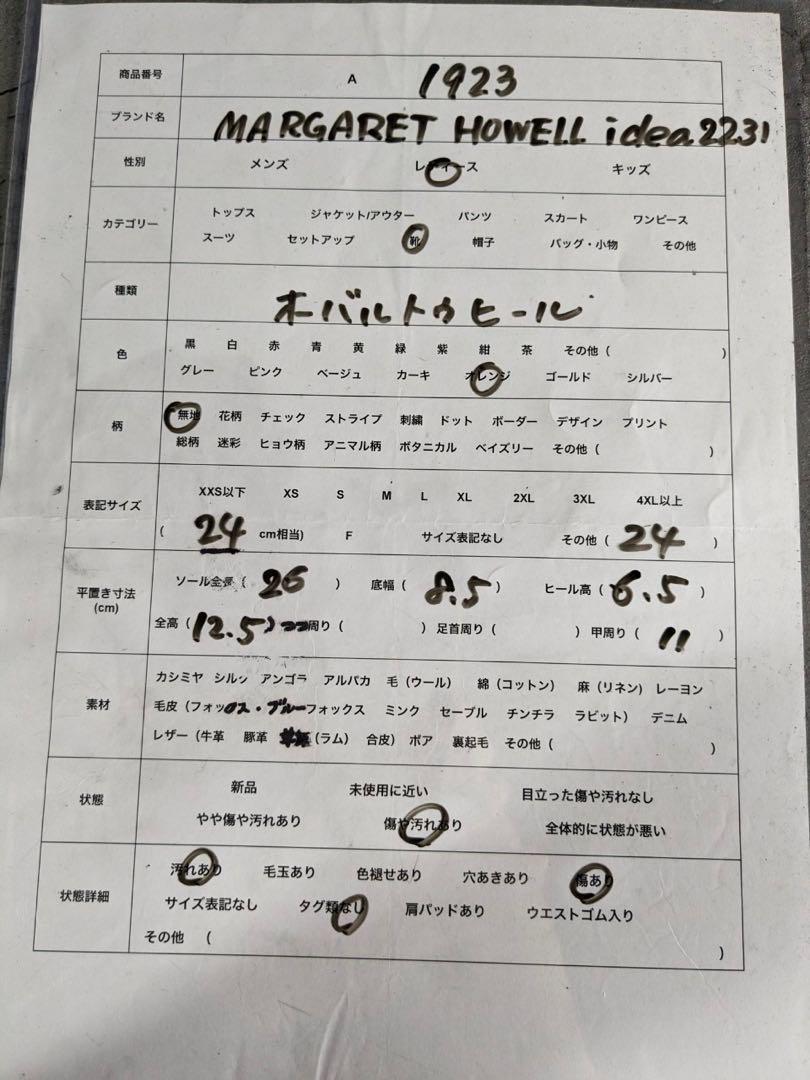 商品番号 A 1923
ブランド名 MARGARET HOWELL idea2231
性別 メンズ レディース キッズ
カテゴリー トップス ジャケット/アウター パンツ スカート ワンピース
スーツ セットアップ 靴 帽子 バッグ・小物 その他
種類 オーバルトゥヒール
色 黒 白 赤 青 黄 緑 紫 紺 茶 その他 ( )
グレー ピンク ベージュ カーキ オレンジ ゴールド シルバー
柄 無地 花柄 チェック ストライプ 刺繍 ドット ボーダー デザイン プリント
総柄 迷彩 ヒョウ柄 アニマル柄 ボタニカル ペイズリー その他 ( )
表記サイズ XXS以下 XS S M L XL 2XL 3XL 4XL以上
( 24 cm相当) F サイズ表記なし その他 ( 24 )
平置き寸法 (cm) ソール全長 ( 26 ) 底幅 ( 8.5 ) ヒール高 ( 6.5 )
全高 ( 12.5 ) つつ周り ( ) 足首周り ( ) 甲周り ( 11 )
素材 カシミヤ シルク アンゴラ アルパカ 毛 (ウール) 綿 (コットン) 麻 (リネン) レーヨン
毛皮 (フォックス・ブルーフォックス ミンク セーブル チンチラ ラビット) デニム
レザー (牛革 豚革 (ラム) 合皮) ボア 裏起毛 その他 ( )
状態 新品 未使用に近い 目立った傷や汚れなし
やや傷や汚れあり 傷や汚れあり 全体的に状態が悪い
状態詳細 汚れあり 毛玉あり 色褪せあり 穴あきあり 傷あり
サイズ表記なし タグ類なし 肩パッドあり ウエストゴム入り
その他 ( )